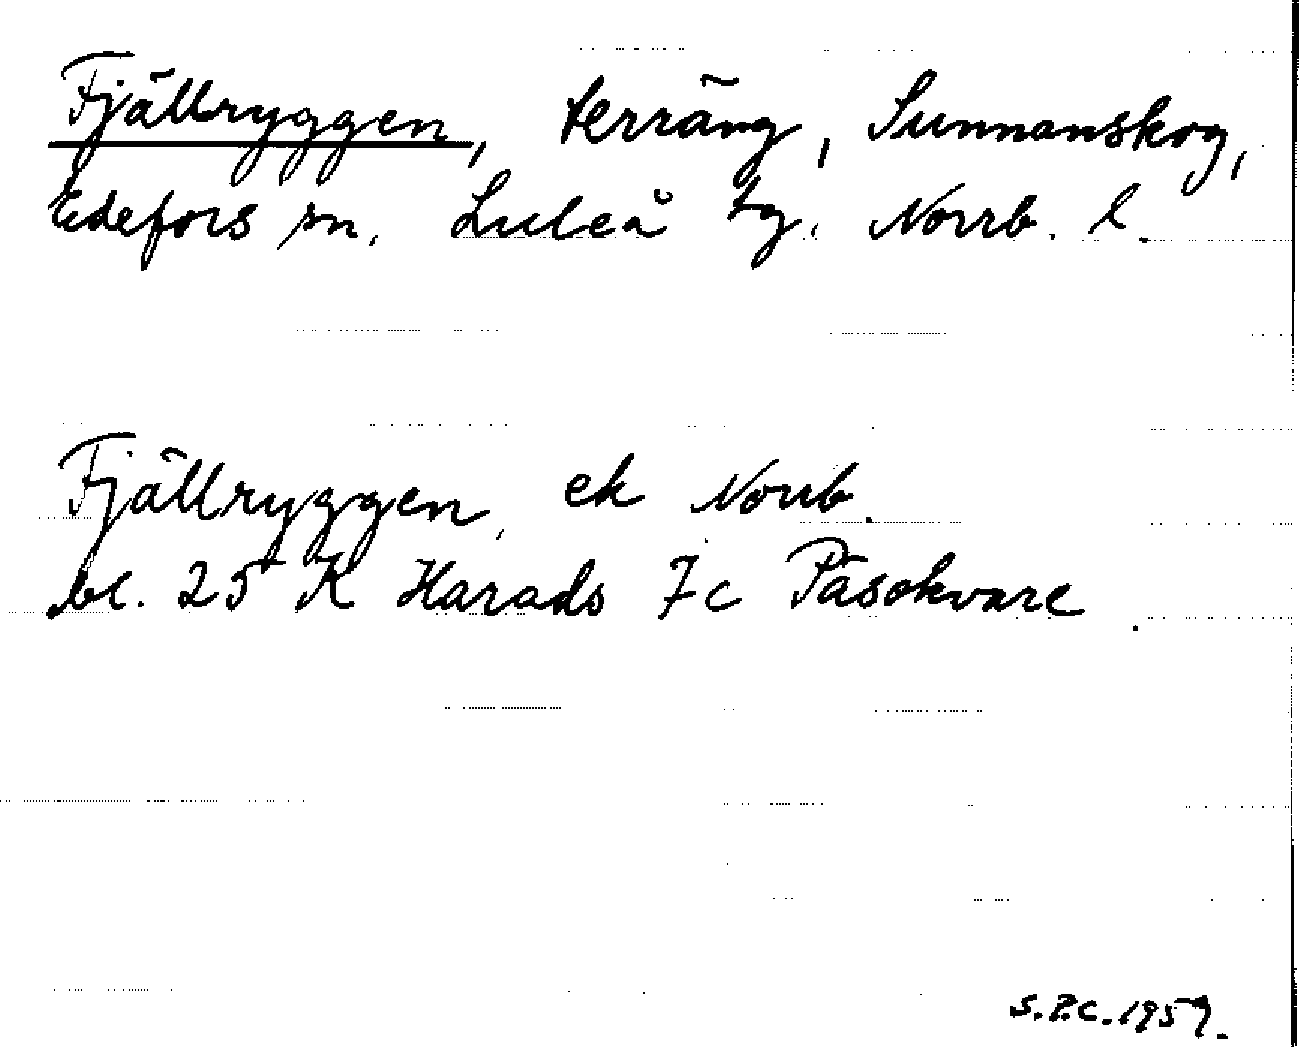 Fjällryggen, terräng, Sunnanskog,
Edefors sn, Luleå tg, Norrb. l.
Fjällryggen, ek Norrb.
bl. 25 K Harads 7c Påsokvare.
S.P.C. 1959.